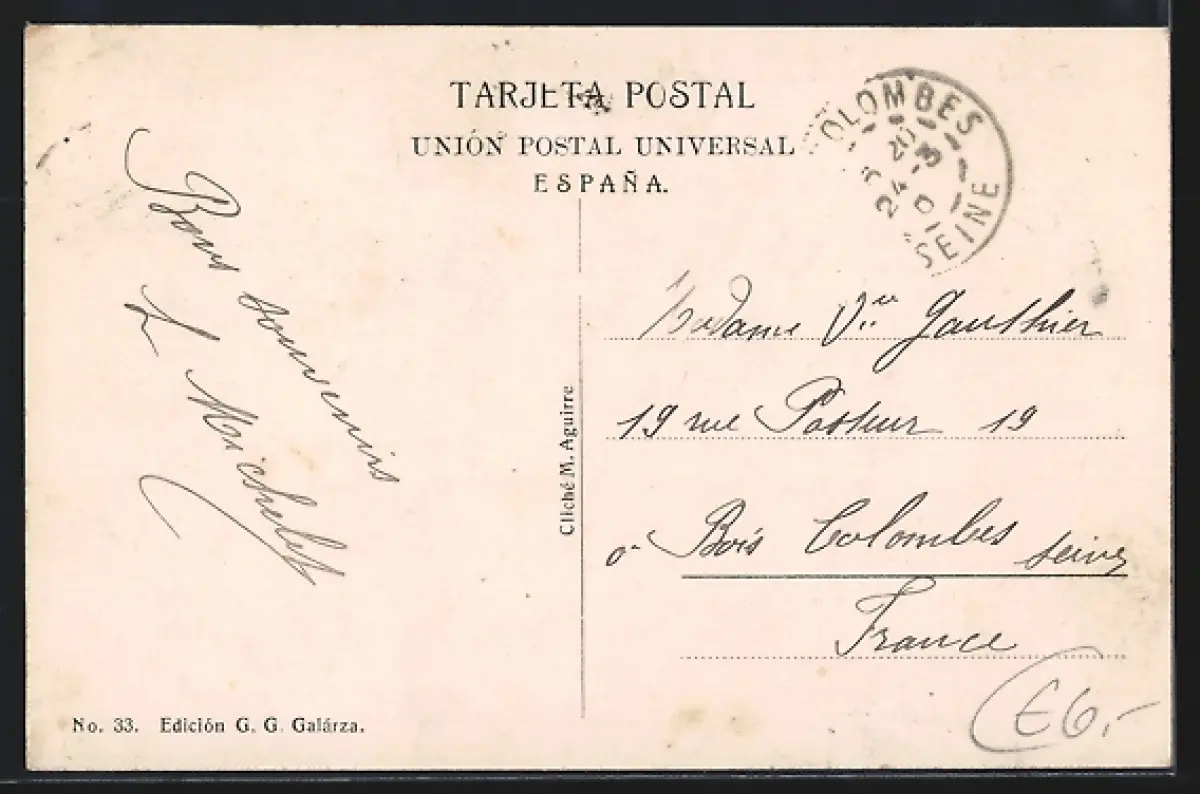 TARJETA POSTAL
UNIÓN POSTAL UNIVERSAL
ESPAÑA.
COLOMBES
20
24 -3
SEINE
Bons souvenirs
L Michel
Madame Vve Gauthier
19 rue Pasteur 19
à Bois Colombes Seine
France
Cliché M. Aguirre
No. 33. Edición G. G. Galárza.
€6,-